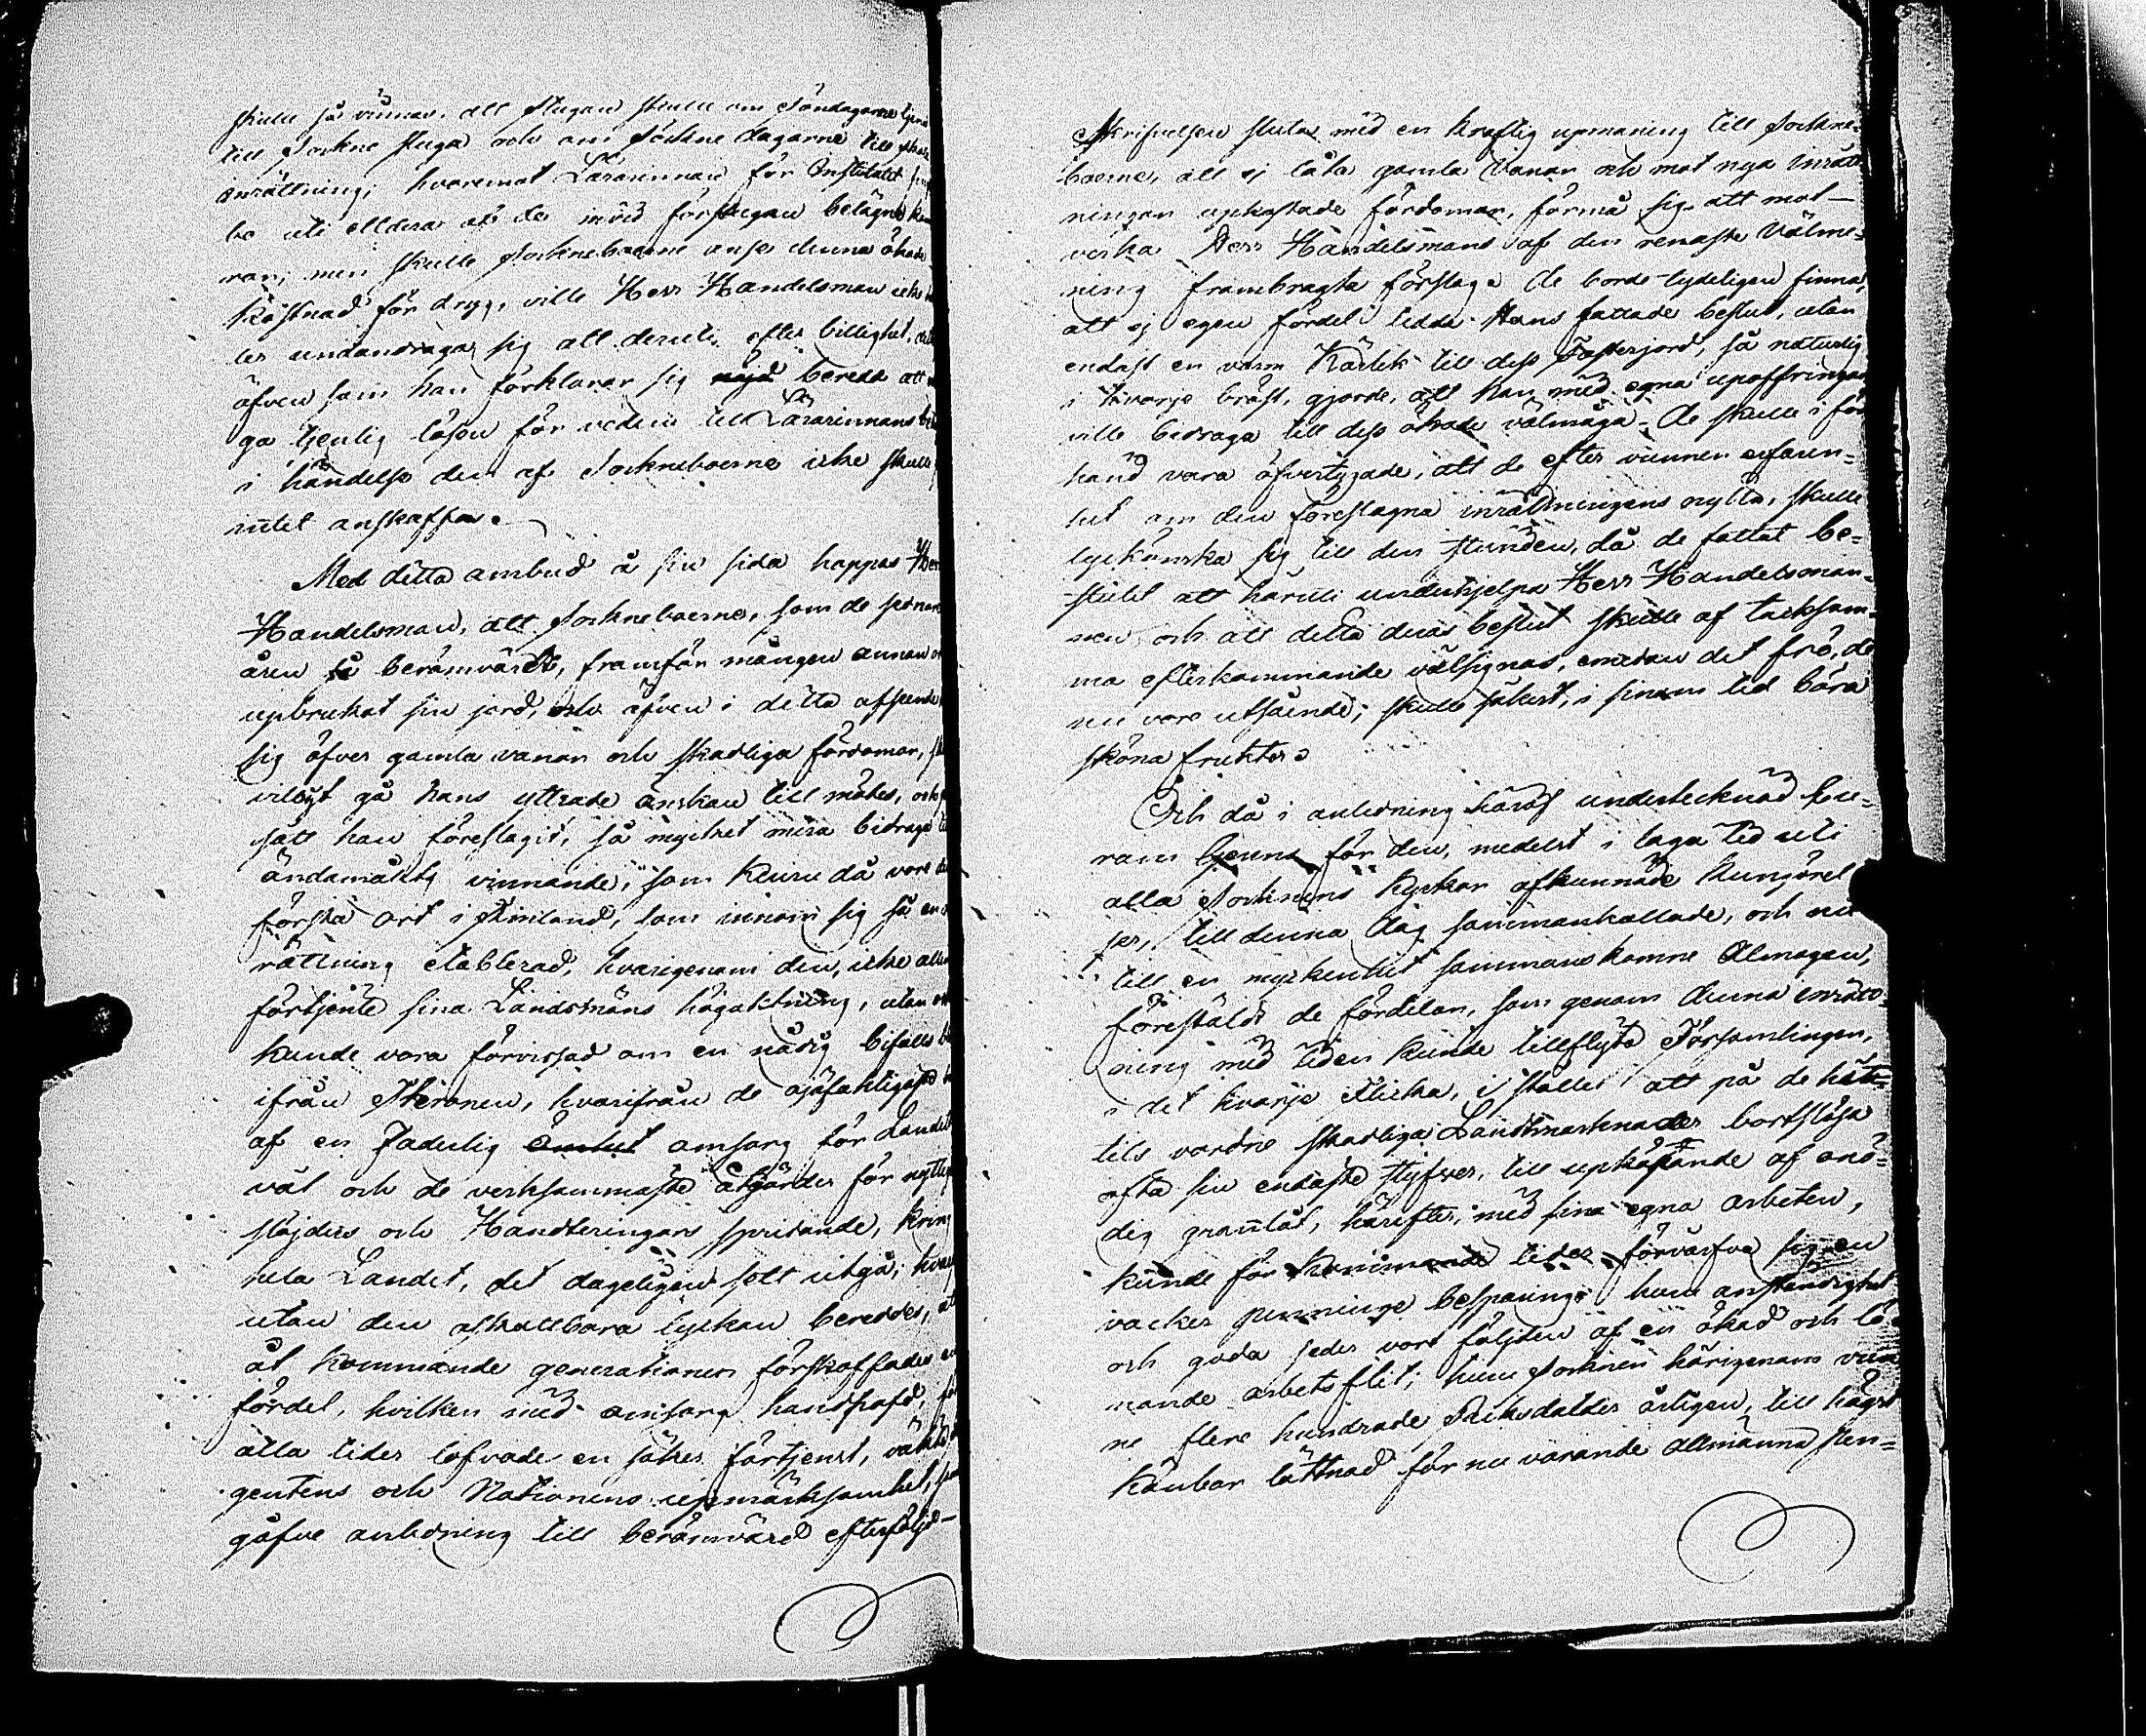 skulle så vinnas, att stugan skulle om Söndagarne tjena
till Sockne stuga och om Söckne dagarne till skole
inrättning; hvaremot Lärarinnan för Institutet finge
bo uti ettdera af de invid förstugan belägne kam
rar; men skulle Sockneboerne anse denna ökade
kostnad för dryg, ville Herr Handelsman icke
ler undandraga sig att deruti efter billighet, del
äfven som han förklarar sig beredd att
ga tjenlig lösen för veden till Lärarinnans
i händelse den af Socknеboerne icke skulle
intet anskaffas.
Med detta anbud å sin sida hoppas Herr
Handelsman, att Socknеboerne, som de senare
åren så berömvärdt, framför mången annan ort
upbrukat sin jord, och äfven i detta afseende
sig öfver gamla vanor och skadliga fördomar,
villigt gå hans yttrade önskan till mötes, och på
sätt han föreslagit, så mycket mera bidraga till
ändamålets vinnande, som Kiuru då vore den
första ort i Finland, som inom sig så en in
rättning etablerad, hvarigenom den, icke allenast
förtjente sina Landsmäns högaktning, utan ock
kunde vara förvissad om en nådig bifalls
ifrån Thronen, hvarifrån de ojäfaktigaste
af en Faderlig omsorg för Landets
väl och de verksammaste åtgärder för nyttige
slöjders och Handteringars spridande, kring
hela Landet, det dageligen sett utgå;
utan den oskattbara lyckan bereddes, att
åt kommande generationer förskaffades en
fördel, hvilken med omsorg handhafd, för
alla tider lofvade en säker förtjenst, väckte
gentens och Nationens upmärksamhet, samt
gåfve anledning till berömvärd efterföljd-
Skrifvelsen slutas med en kraftig upmaning till Sockne-
boerne, att ej låta gamla vanor och mot nya inrätt
ningar upkastade fördomar, förmå sig att mot-
verka Herr Handelsmans af den renaste Välme-
ning frambragta förslag. De borde tydeligen finna
att ej egen fördel ledde Hans fattade beslut, utan
endast en varm Kärlek till dess Fosterjord, så naturlig
i hvarje bröst, gjorde, att han med egna upoffringar
ville bidraga till dess ökade välmåga. De skulle i för
hand vara öfvertygade, att de efter vunnen erfaren-
het om den föreslagna inrättningens nytta, skulle
lyckönska sig till den stunden, då de fattat be-
slutet att häruti underhjelpa Herr Handelsman-
nen och att detta deras beslut skulle af tacksam-
ma efterkommande välsignas, emedan det frö, de
nu vore utsående, skulle säkert, i sinom tid bära
sköna frukter.
Och då i anledning häraf undertecknad fore-
ram ljenns för den, medelst i laga tid uti
alla Socknens Kyrkor afkunnade Kungörel
ser, till denna dag sammankallade, och nu
till en myckenhet sammankomne Almogen,
föreställdt de fördelar, som genom denna inrätt-
ning med tiden kunde tillflyta Församlingen,
i det hvarje Flicka, i stället att på de hit-
tils vordne skadliga Landtmarknader bortslösa
ofta sin endaste styfver, till upköpande af onö-
dig grannlåt, härefter, med sina egna arbeten,
kunde för kommande tider förvärfva sig en
vacker penninge besparing; huru anständighet
och goda seder vore följden af en ökad och lö-
nande arbetsflit; huru Socknen härigenom vun
ne flere hundrade Riksdalder årligen, till högst
känbar lättnad för nu varande allmänna pen-